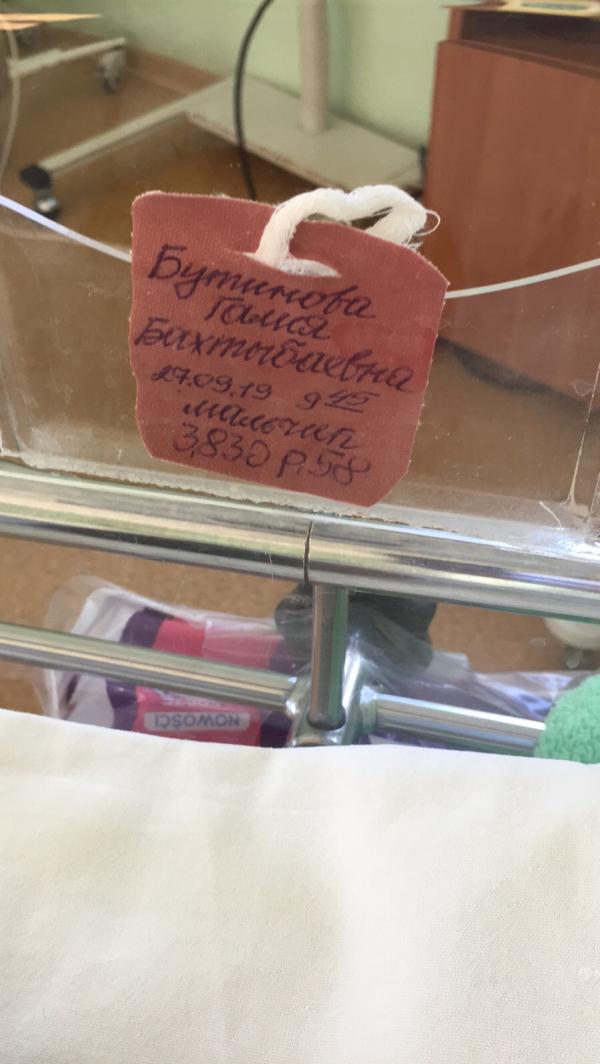 Бутинова
Галия
Бахтыбаевна
27.09.19 9 45
мальчик
3,830 р.58
NOWOŚCI